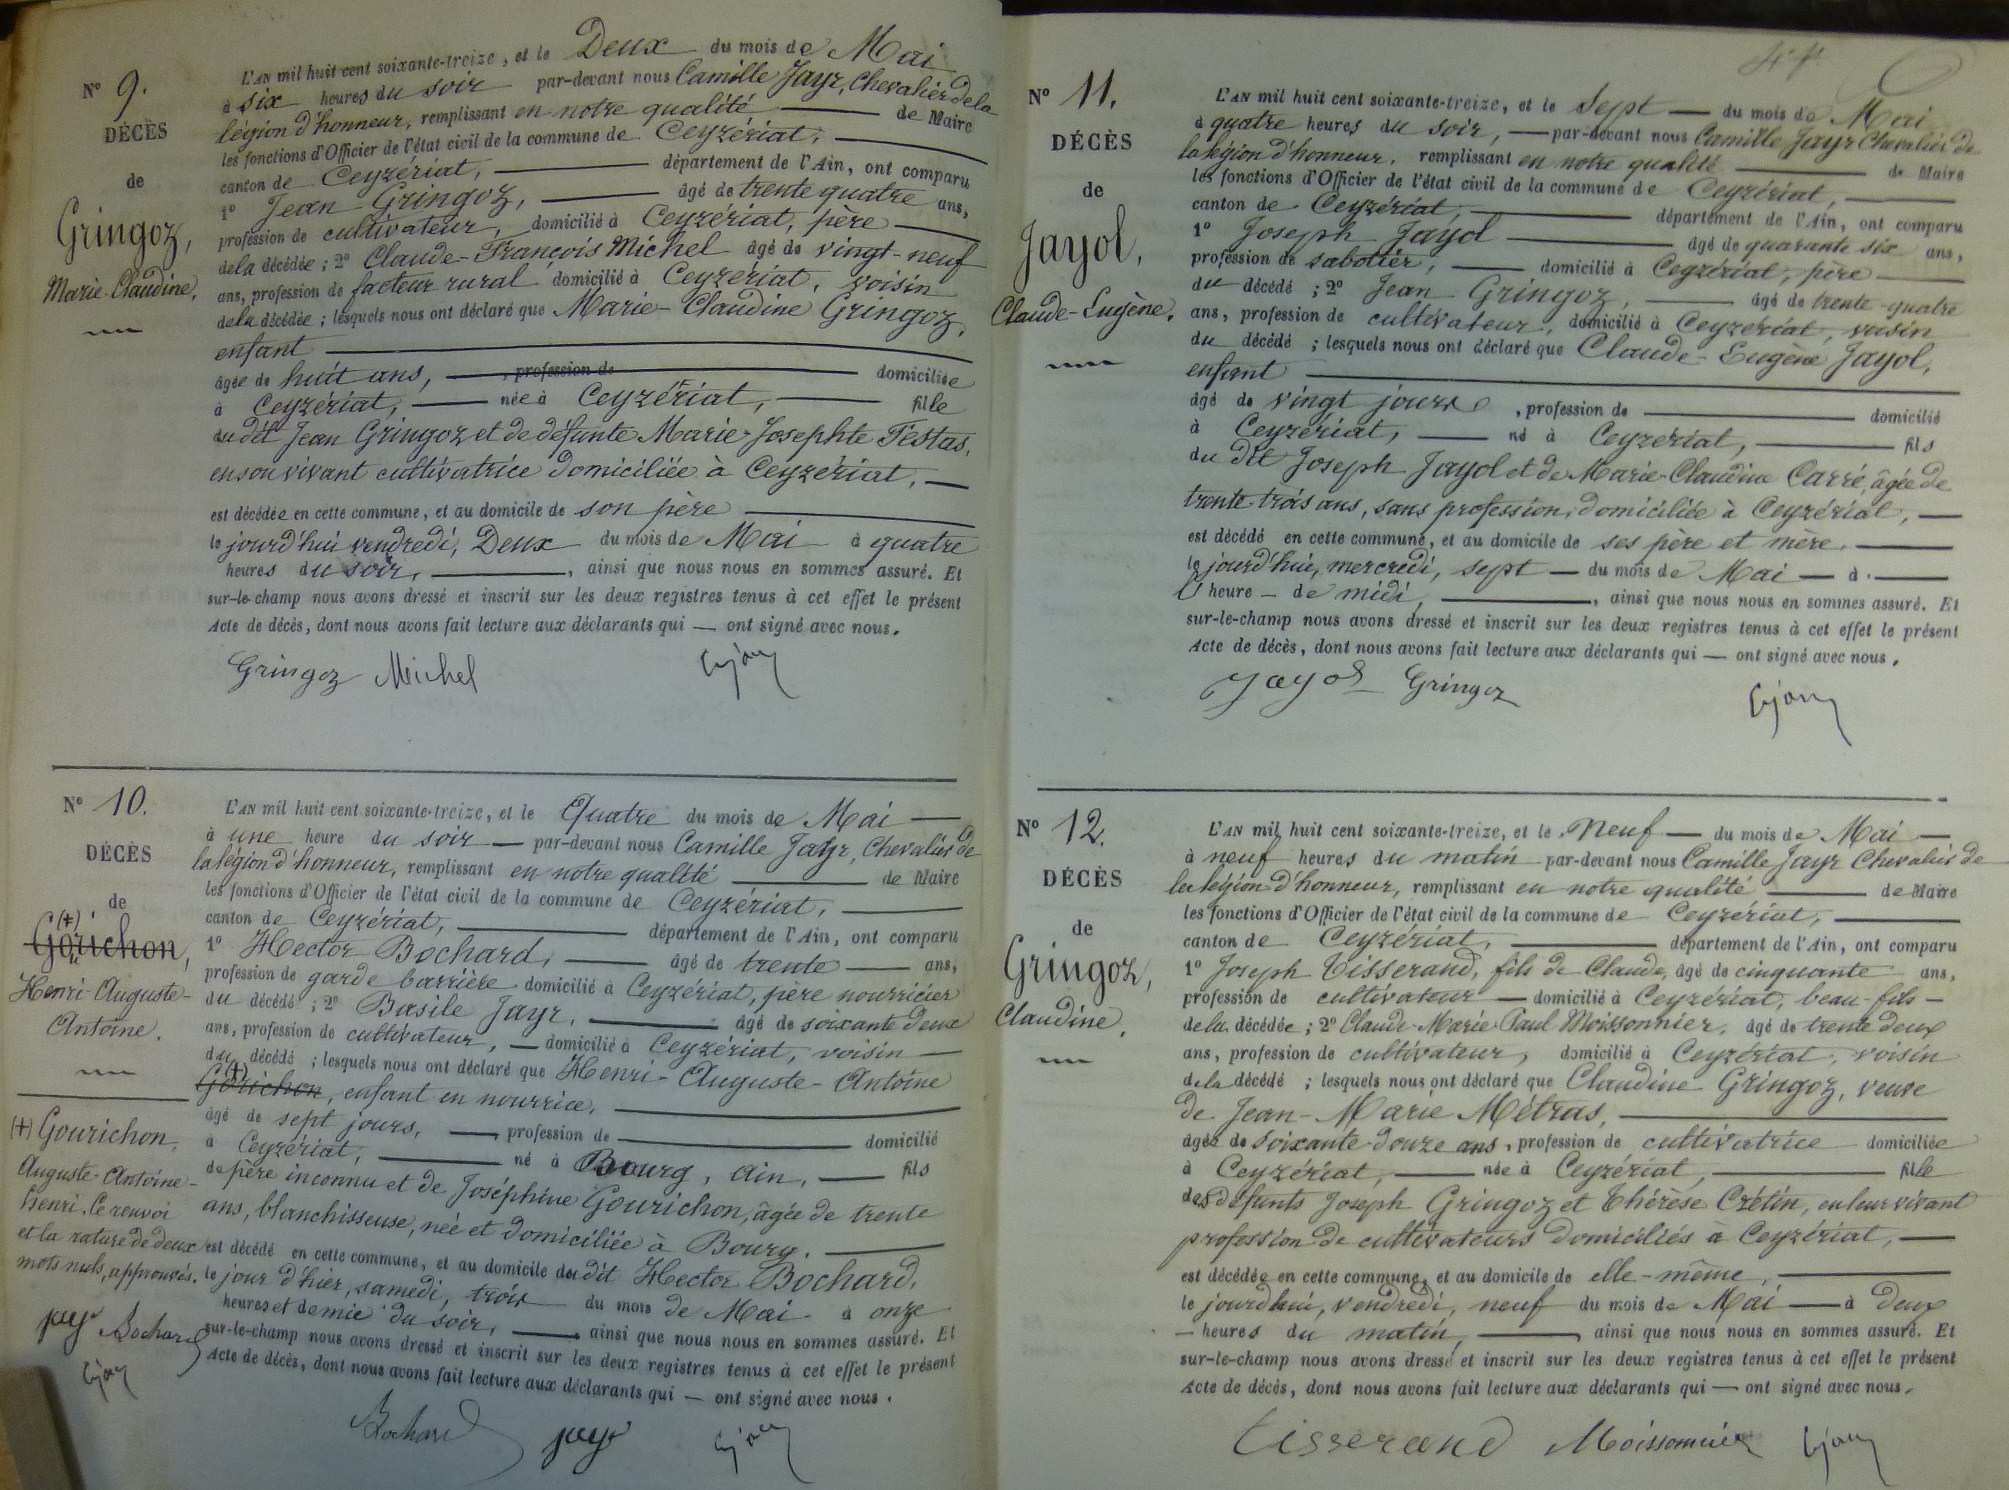 N° 9.
DÉCÈS
de
Gringoz,
Marie-Claudine.
L'AN mil huit cent soixante-treize, et le Deux du mois de Mai
à six heures du soir par-devant nous Camille Jayr, Chevalier de la
légion d'honneur, remplissant en notre qualité de Maire
les fonctions d'Officier de l'état civil de la commune de Ceyzériat,
canton de Ceyzériat, département de l'Ain, ont comparu
1° Jean Gringoz, âgé de trente quatre ans,
profession de cultivateur, domicilié à Ceyzériat, père
de la décédée ; 2° Claude-François Michel âgé de vingt-neuf
ans, profession de facteur rural domicilié à Ceyzériat, voisin
de la décédée ; lesquels nous ont déclaré que Marie-Claudine Gringoz,
enfant
âgée de huit ans, , profession de domiciliée
à Ceyzériat, née à Ceyzériat, fille
du dit Jean Gringoz et de défunte Marie-Josephte Festas,
en son vivant cultivatrice domiciliée à Ceyzériat,
est décédée en cette commune, et au domicile de son père
le jourd'hui vendredi, Deux du mois de Mai à quatre
heures du soir, , ainsi que nous nous en sommes assuré. Et
sur-le-champ nous avons dressé et inscrit sur les deux registres tenus à cet effet le présent
Acte de décès, dont nous avons fait lecture aux déclarants qui — ont signé avec nous.
Gringoz Michel CJayr
N° 10.
DÉCÈS
de
(+)
Gorichon,
Henri-Auguste-
Antoine.
(+) Gourichon,
Auguste-Antoine-
henri. Ce renvoi
et la rature de deux
mots nuls, approuvés.
jayr Bochard
CJayr
L'AN mil huit cent soixante-treize, et le Quatre du mois de Mai
à une heure du soir par-devant nous Camille Jayr, Chevalier de
la légion d'honneur, remplissant en notre qualité de Maire
les fonctions d'Officier de l'état civil de la commune de Ceyzériat,
canton de Ceyzériat, département de l'Ain, ont comparu
1° Hector Bochard, âgé de trente ans,
profession de garde barrière domicilié à Ceyzériat, père nourricier
du décédé ; 2° Basile Jayr, âgé de soixante deux
ans, profession de cultivateur, domicilié à Ceyzériat, voisin
du décédé ; lesquels nous ont déclaré que Henri-Auguste-Antoine
(+)
Gorichon, enfant en nourrice,
âgé de sept jours, , profession de domicilié
à Ceyzériat, né à Bourg, Ain, fils
de père inconnu et de Joséphine Gourichon, âgée de trente
ans, blanchisseuse, née et domiciliée à Bourg.
est décédé en cette commune, et au domicile du dit Hector Bochard,
le jour d'hier, samedi, trois du mois de Mai à onze
heures et demie du soir, , ainsi que nous nous en sommes assuré. Et
sur-le-champ nous avons dressé et inscrit sur les deux registres tenus à cet effet le présent
Acte de décès, dont nous avons fait lecture aux déclarants qui — ont signé avec nous.
Bochard jayr CJayr
N° 11.
DÉCÈS
de
Jayol,
Claude-Eugène.
L'AN mil huit cent soixante-treize, et le Sept du mois de Mai
à quatre heures du soir, par-devant nous Camille Jayr Chevalier de
la légion d'honneur, remplissant en notre qualité de Maire
les fonctions d'Officier de l'état civil de la commune de Ceyzériat,
canton de Ceyzériat, département de l'Ain, ont comparu
1° Joseph Jayol âgé de quarante six ans,
profession de sabotier, domicilié à Ceyzériat, père
du décédé ; 2° Jean Gringoz, âgé de trente-quatre
ans, profession de cultivateur, domicilié à Ceyzériat, voisin
du décédé ; lesquels nous ont déclaré que Claude-Eugène Jayol,
enfant
âgé de vingt jours , profession de domicilié
à Ceyzériat, né à Ceyzériat, fils
du dit Joseph Jayol et de Marie-Claudine Carré, âgée de
trente-trois ans, sans profession, domiciliée à Ceyzériat,
est décédé en cette commune, et au domicile de ses père et mère.
le jourd'hui, mercredi, sept du mois de Mai à
heure de midi, , ainsi que nous nous en sommes assuré. Et
sur-le-champ nous avons dressé et inscrit sur les deux registres tenus à cet effet le présent
Acte de décès, dont nous avons fait lecture aux déclarants qui — ont signé avec nous.
Jayol Gringoz CJayr
N° 12.
DÉCÈS
de
Gringoz,
Claudine.
L'AN mil huit cent soixante-treize, et le Neuf du mois de Mai
à neuf heures du matin par-devant nous Camille Jayr Chevalier de
la légion d'honneur, remplissant en notre qualité de Maire
les fonctions d'Officier de l'état civil de la commune de Ceyzériat,
canton de Ceyzériat, département de l'Ain, ont comparu
1° Joseph Tisserand, fils de Claude, âgé de cinquante ans,
profession de cultivateur domicilié à Ceyzériat, beau-fils
de la décédée ; 2° Claude-Marie-Paul Moissonnier, âgé de trente deux
ans, profession de cultivateur, domicilié à Ceyzériat, voisin
de la décédé ; lesquels nous ont déclaré que Claudine Gringoz, veuve
de Jean-Marie Métras,
âgée de soixante-douze ans, profession de cultivatrice domiciliée
à Ceyzériat, née à Ceyzériat, fille
des défunts Joseph Gringoz et Thérèse Crétin, en leur vivant
profession de cultivateurs domiciliés à Ceyzériat,
est décédée en cette commune, et au domicile de elle-même,
le jourd'hui, vendredi, neuf du mois de Mai à deux
heures du matin, , ainsi que nous nous en sommes assuré. Et
sur-le-champ nous avons dressé et inscrit sur les deux registres tenus à cet effet le présent
Acte de décès, dont nous avons fait lecture aux déclarants qui — ont signé avec nous.
Tisserand Moissonnier CJayr